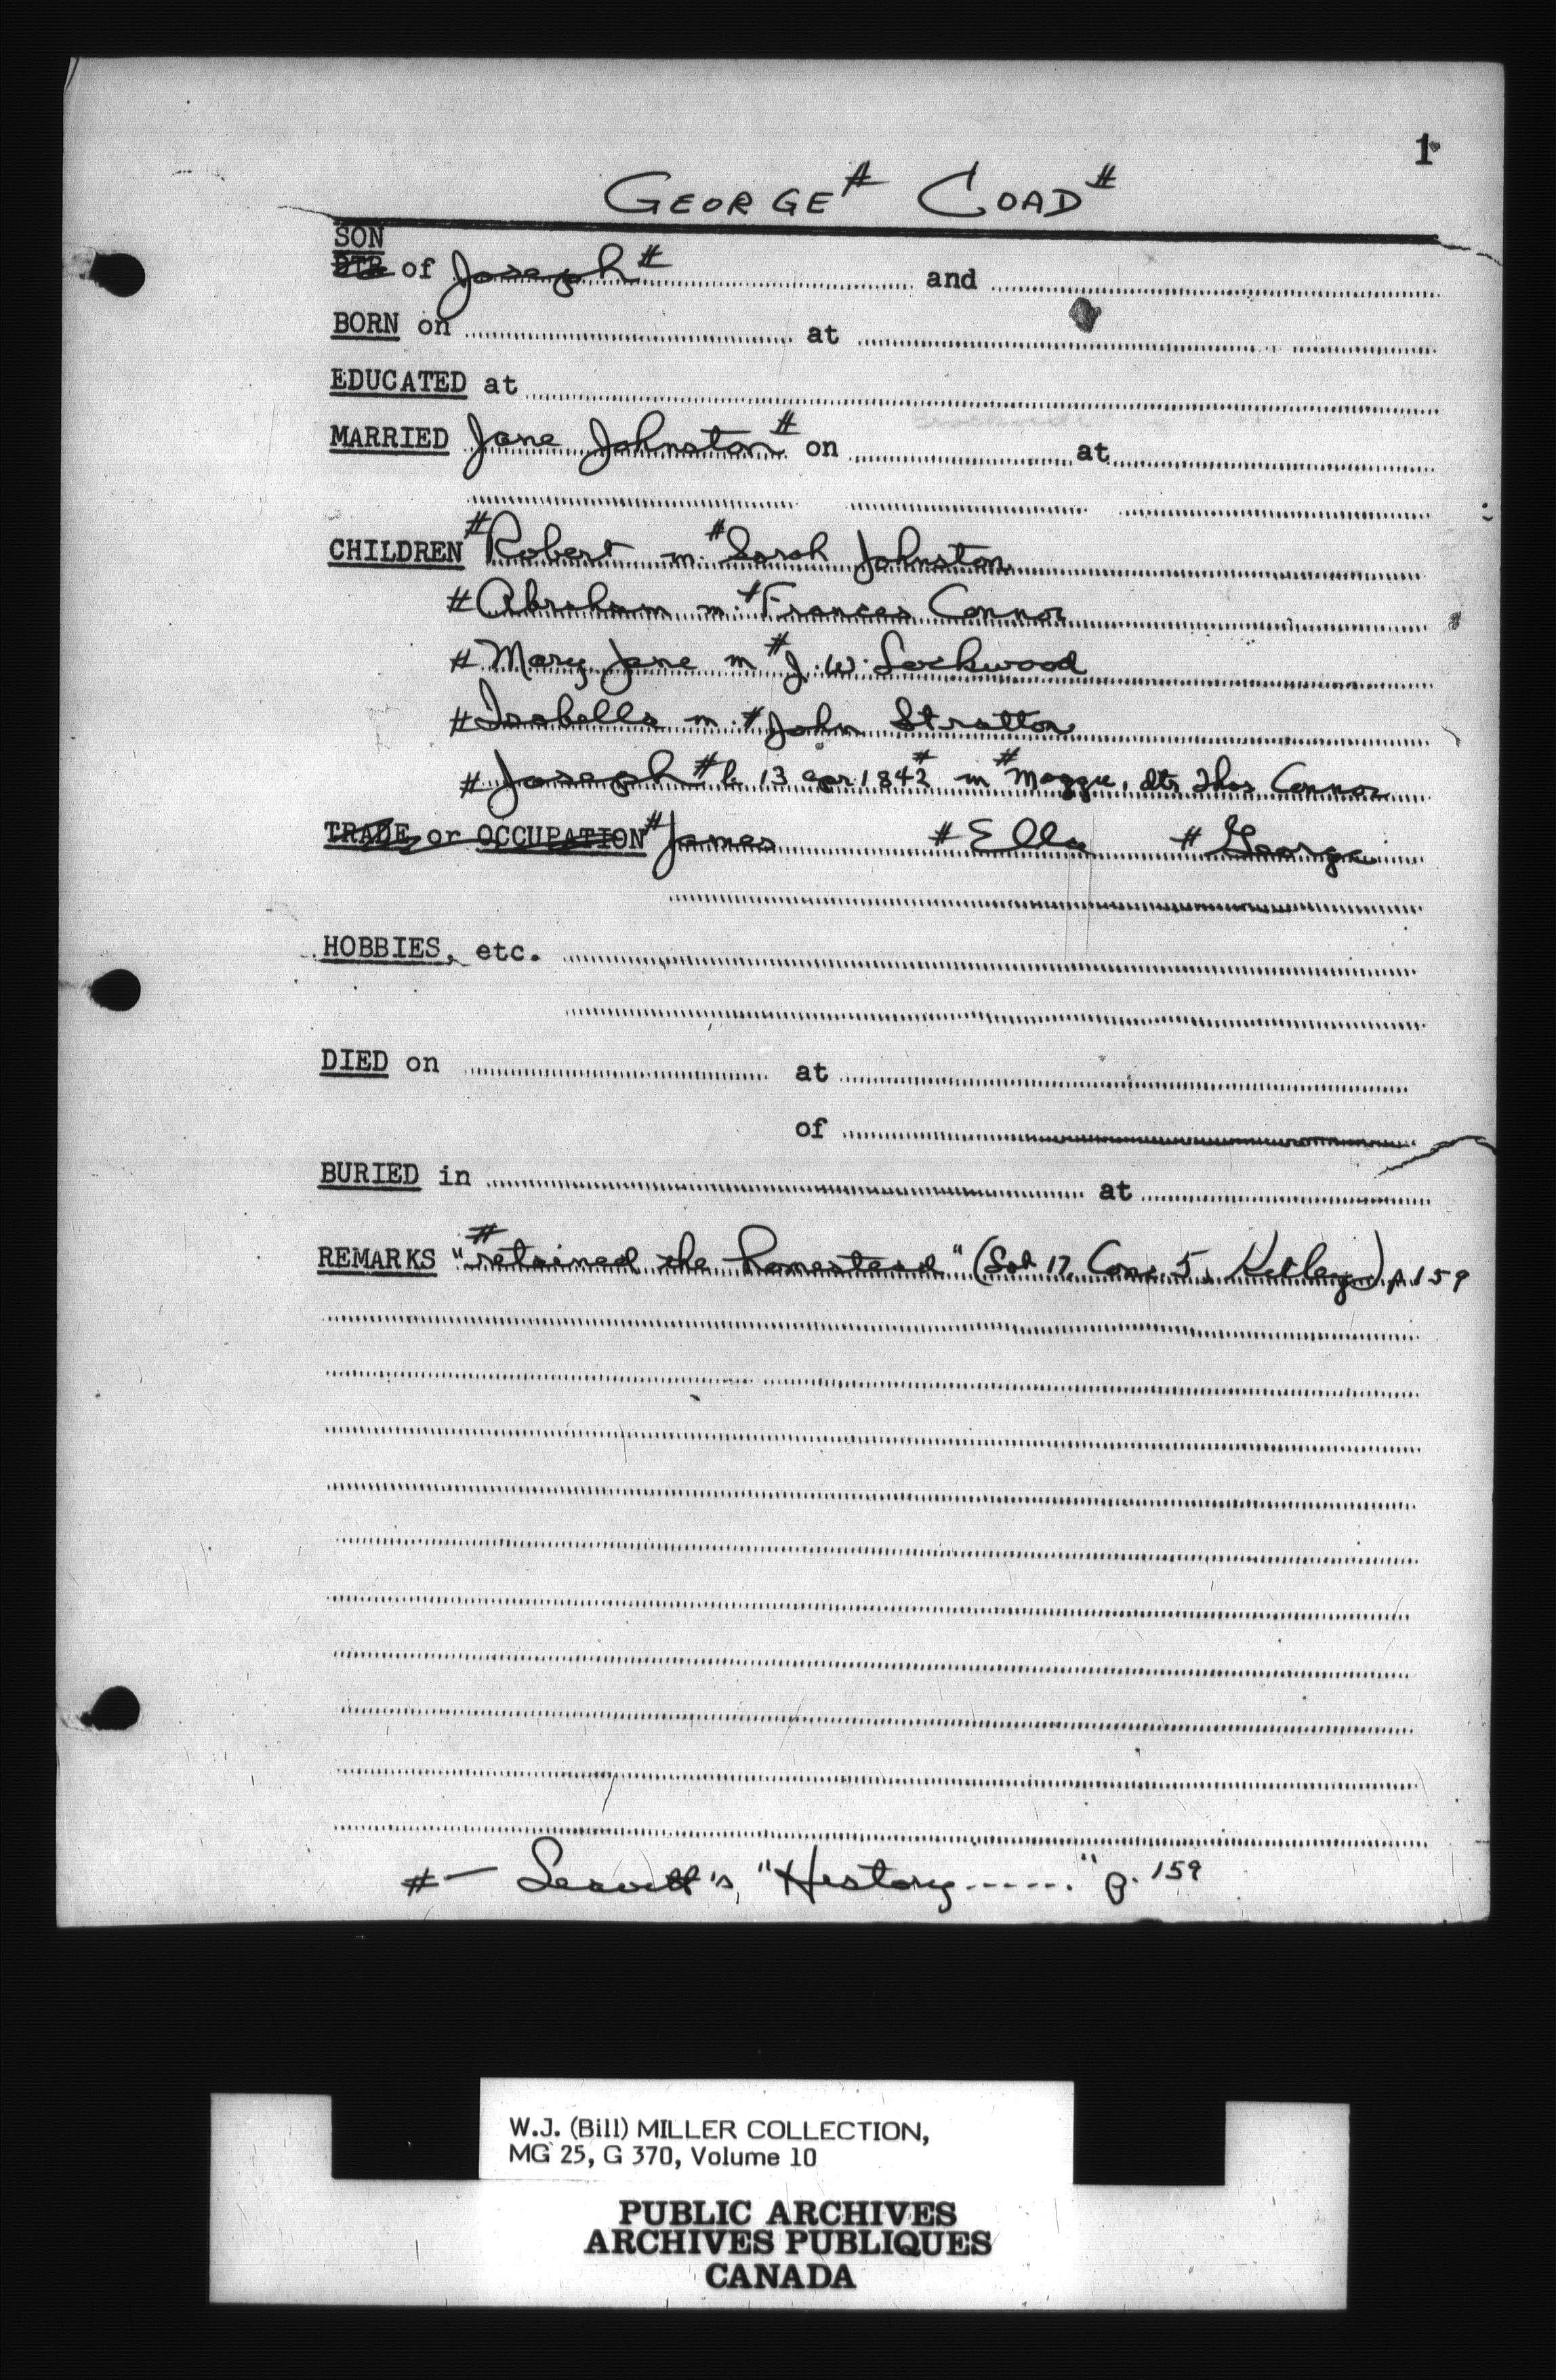 1
GEORGE # COAD #
SON
DTR of Joseph # and
BORN on at
EDUCATED at
MARRIED Jane Johnston # on at
CHILDREN # Robert m. # Sarah Johnston
# Abraham m. # Frances Connor
# Mary Jane m # J. W. Lockwood
# Isabella m. # John Stratton
# Joseph # b. 13 apr. 1842 # m # Maggie, dtr Thos Connor
TRADE or OCCUPATION # James # Ella # George
HOBBIES, etc.
DIED on at
of
BURIED in at
REMARKS "# retained the homestead" (Lot 17, Conc. 5, Kitley) p. 159
# — Leavitt's, "History ......" p. 159
W.J. (Bill) MILLER COLLECTION,
MG 25, G 370, Volume 10
PUBLIC ARCHIVES
ARCHIVES PUBLIQUES
CANADA